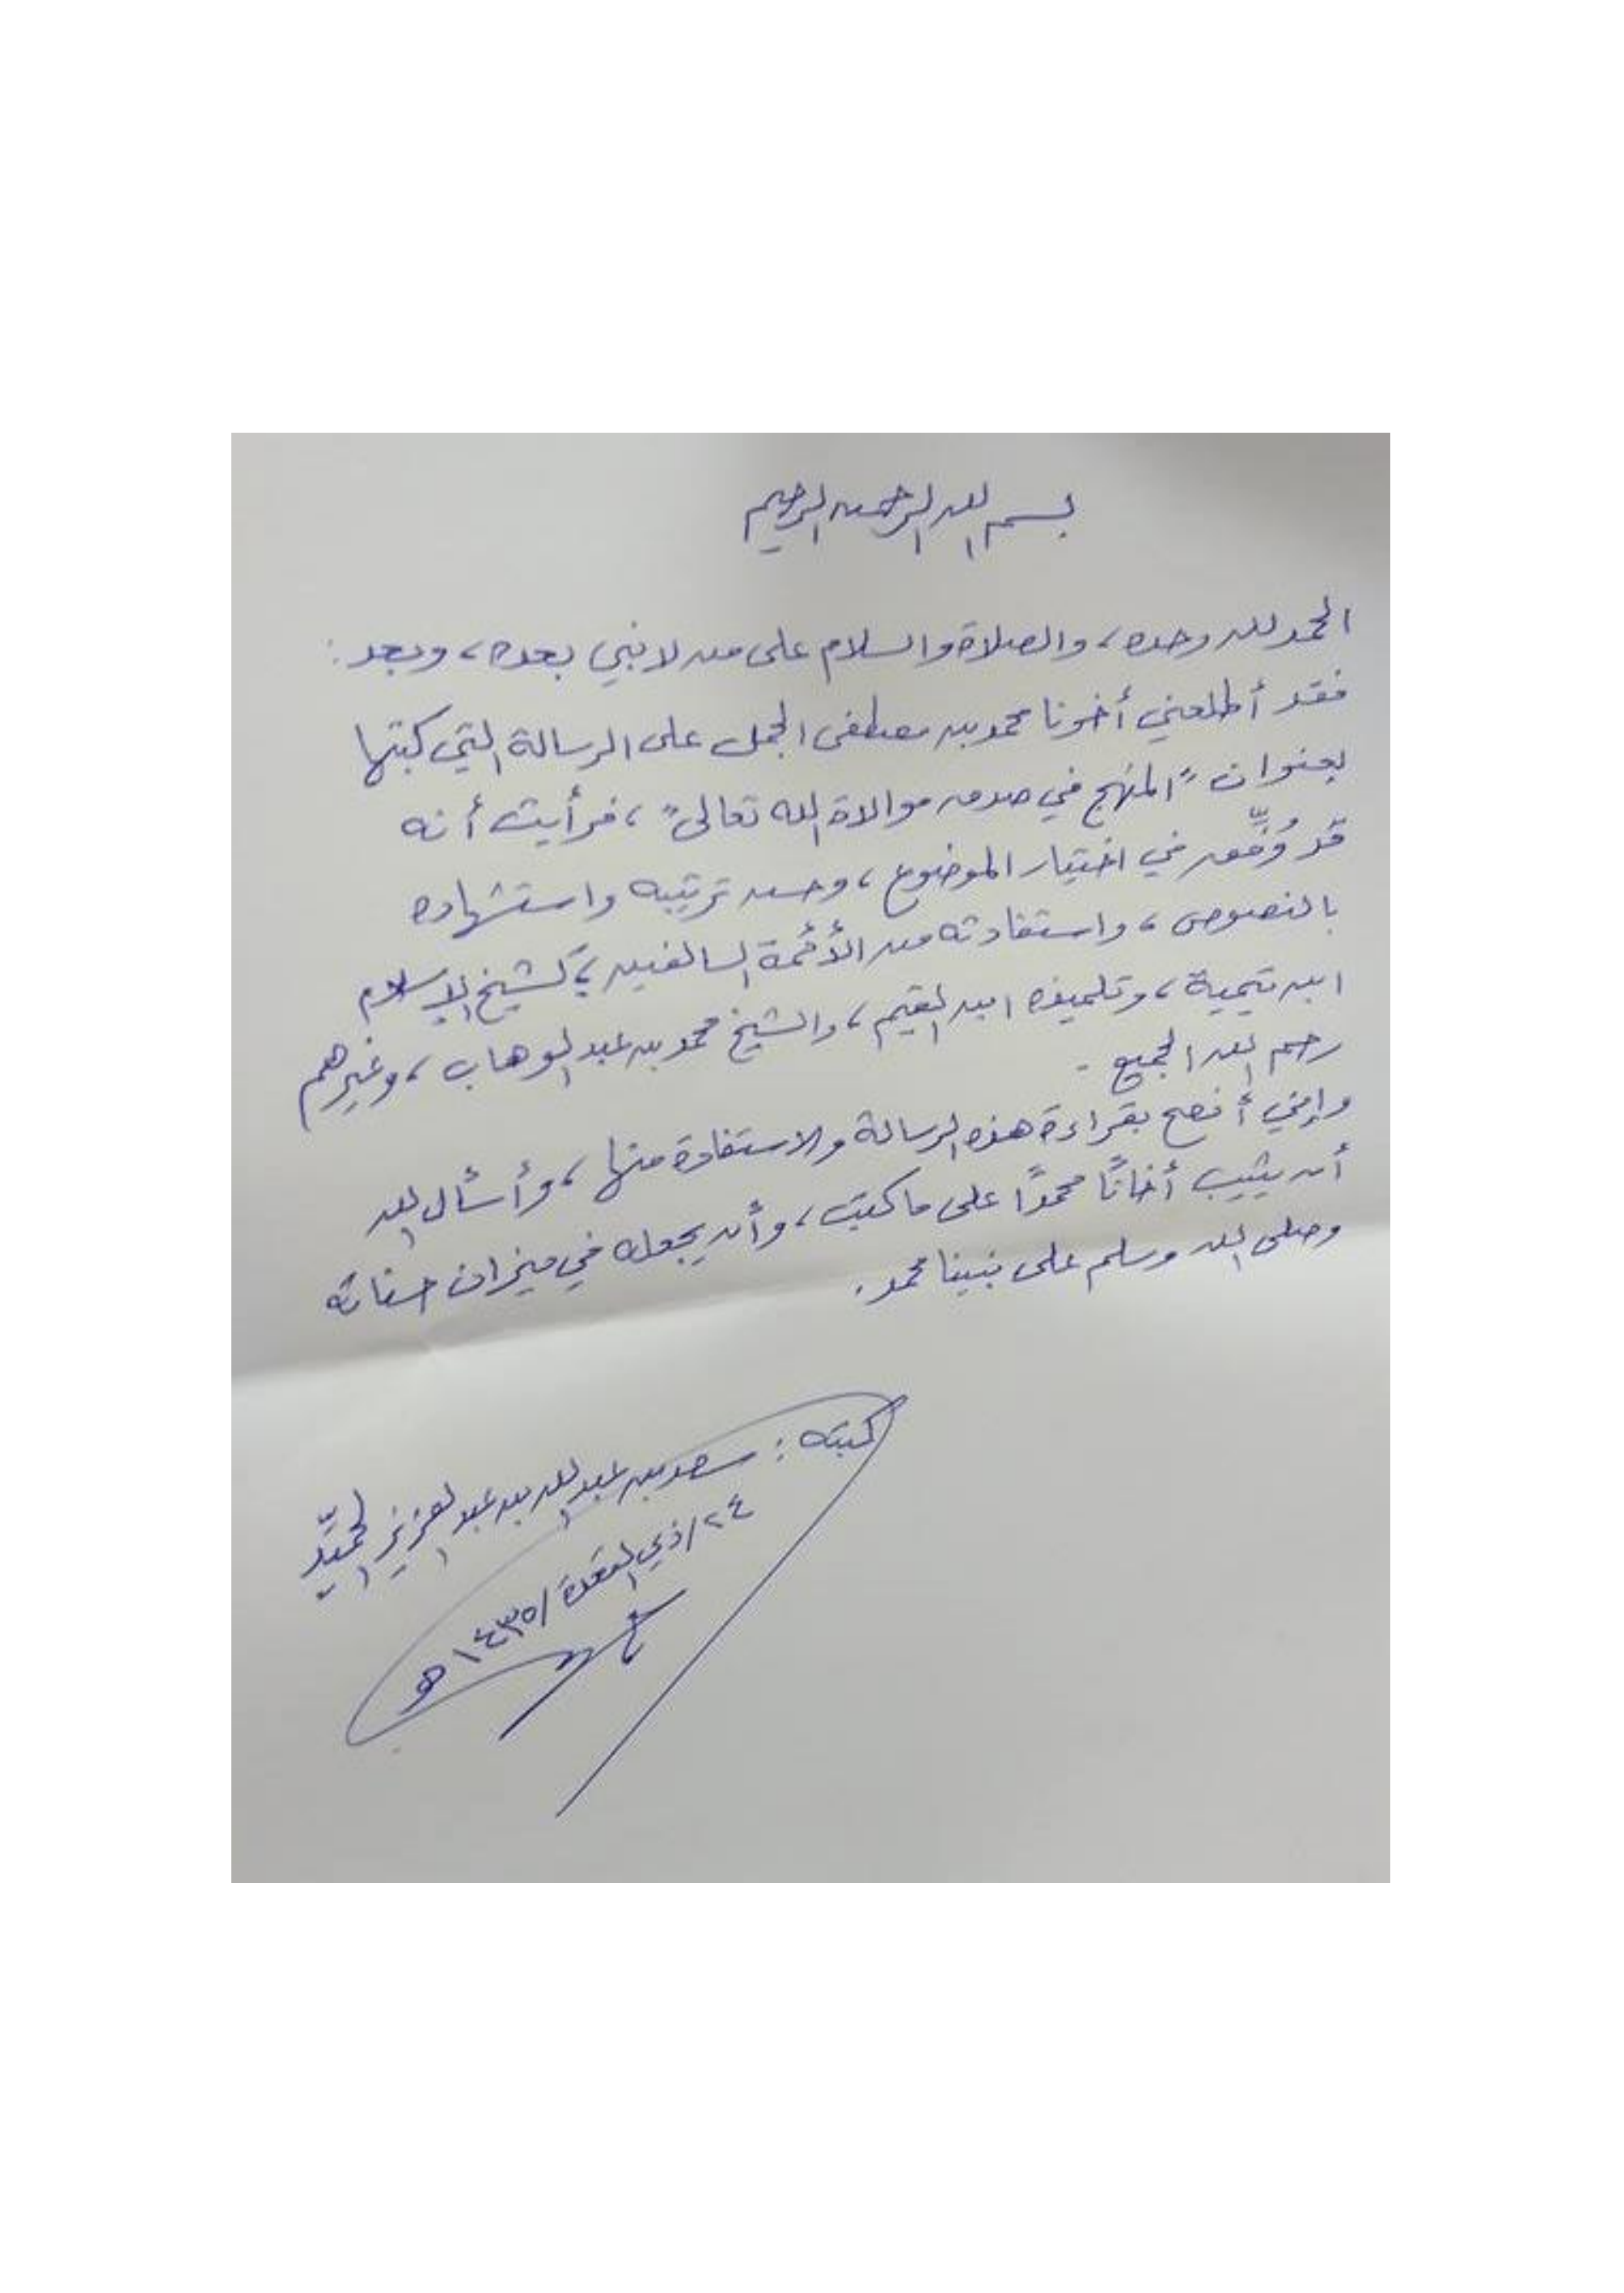 بسم الله الرحمن الرحيم
الحمد لله وحده، والصلاة والسلام على من لا نبي بعده، وبعد:
فقد أطلعني أخونا محمد بن مصطفى الجمل على الرسالة التي كتبها
بعنوان "المنهج في صدق موالاة الله تعالى"، فرأيت أنه
قد وُفِّق في اختيار الموضوع، وحسن ترتيبه واستشهاده
بالنصوص، واستفادته من الأئمة السالفين؛ كشيخ الإسلام
ابن تيمية، وتلميذه ابن القيم، والشيخ محمد بن عبد الوهاب، وغيرهم
رحم الله الجميع.
وإني أنصح بقراءة هذه الرسالة والاستفادة منها، وأسأل الله
أن يثيب أخانًا محمدًا على ما كتب، وأن يجعله في ميزان حسناته
وصلى الله وسلم على نبينا محمد.
كتبه: سعد بن عبد الله بن عبد العزيز الحميّد
٢٤/ذي القعدة/١٤٣٥ هـ